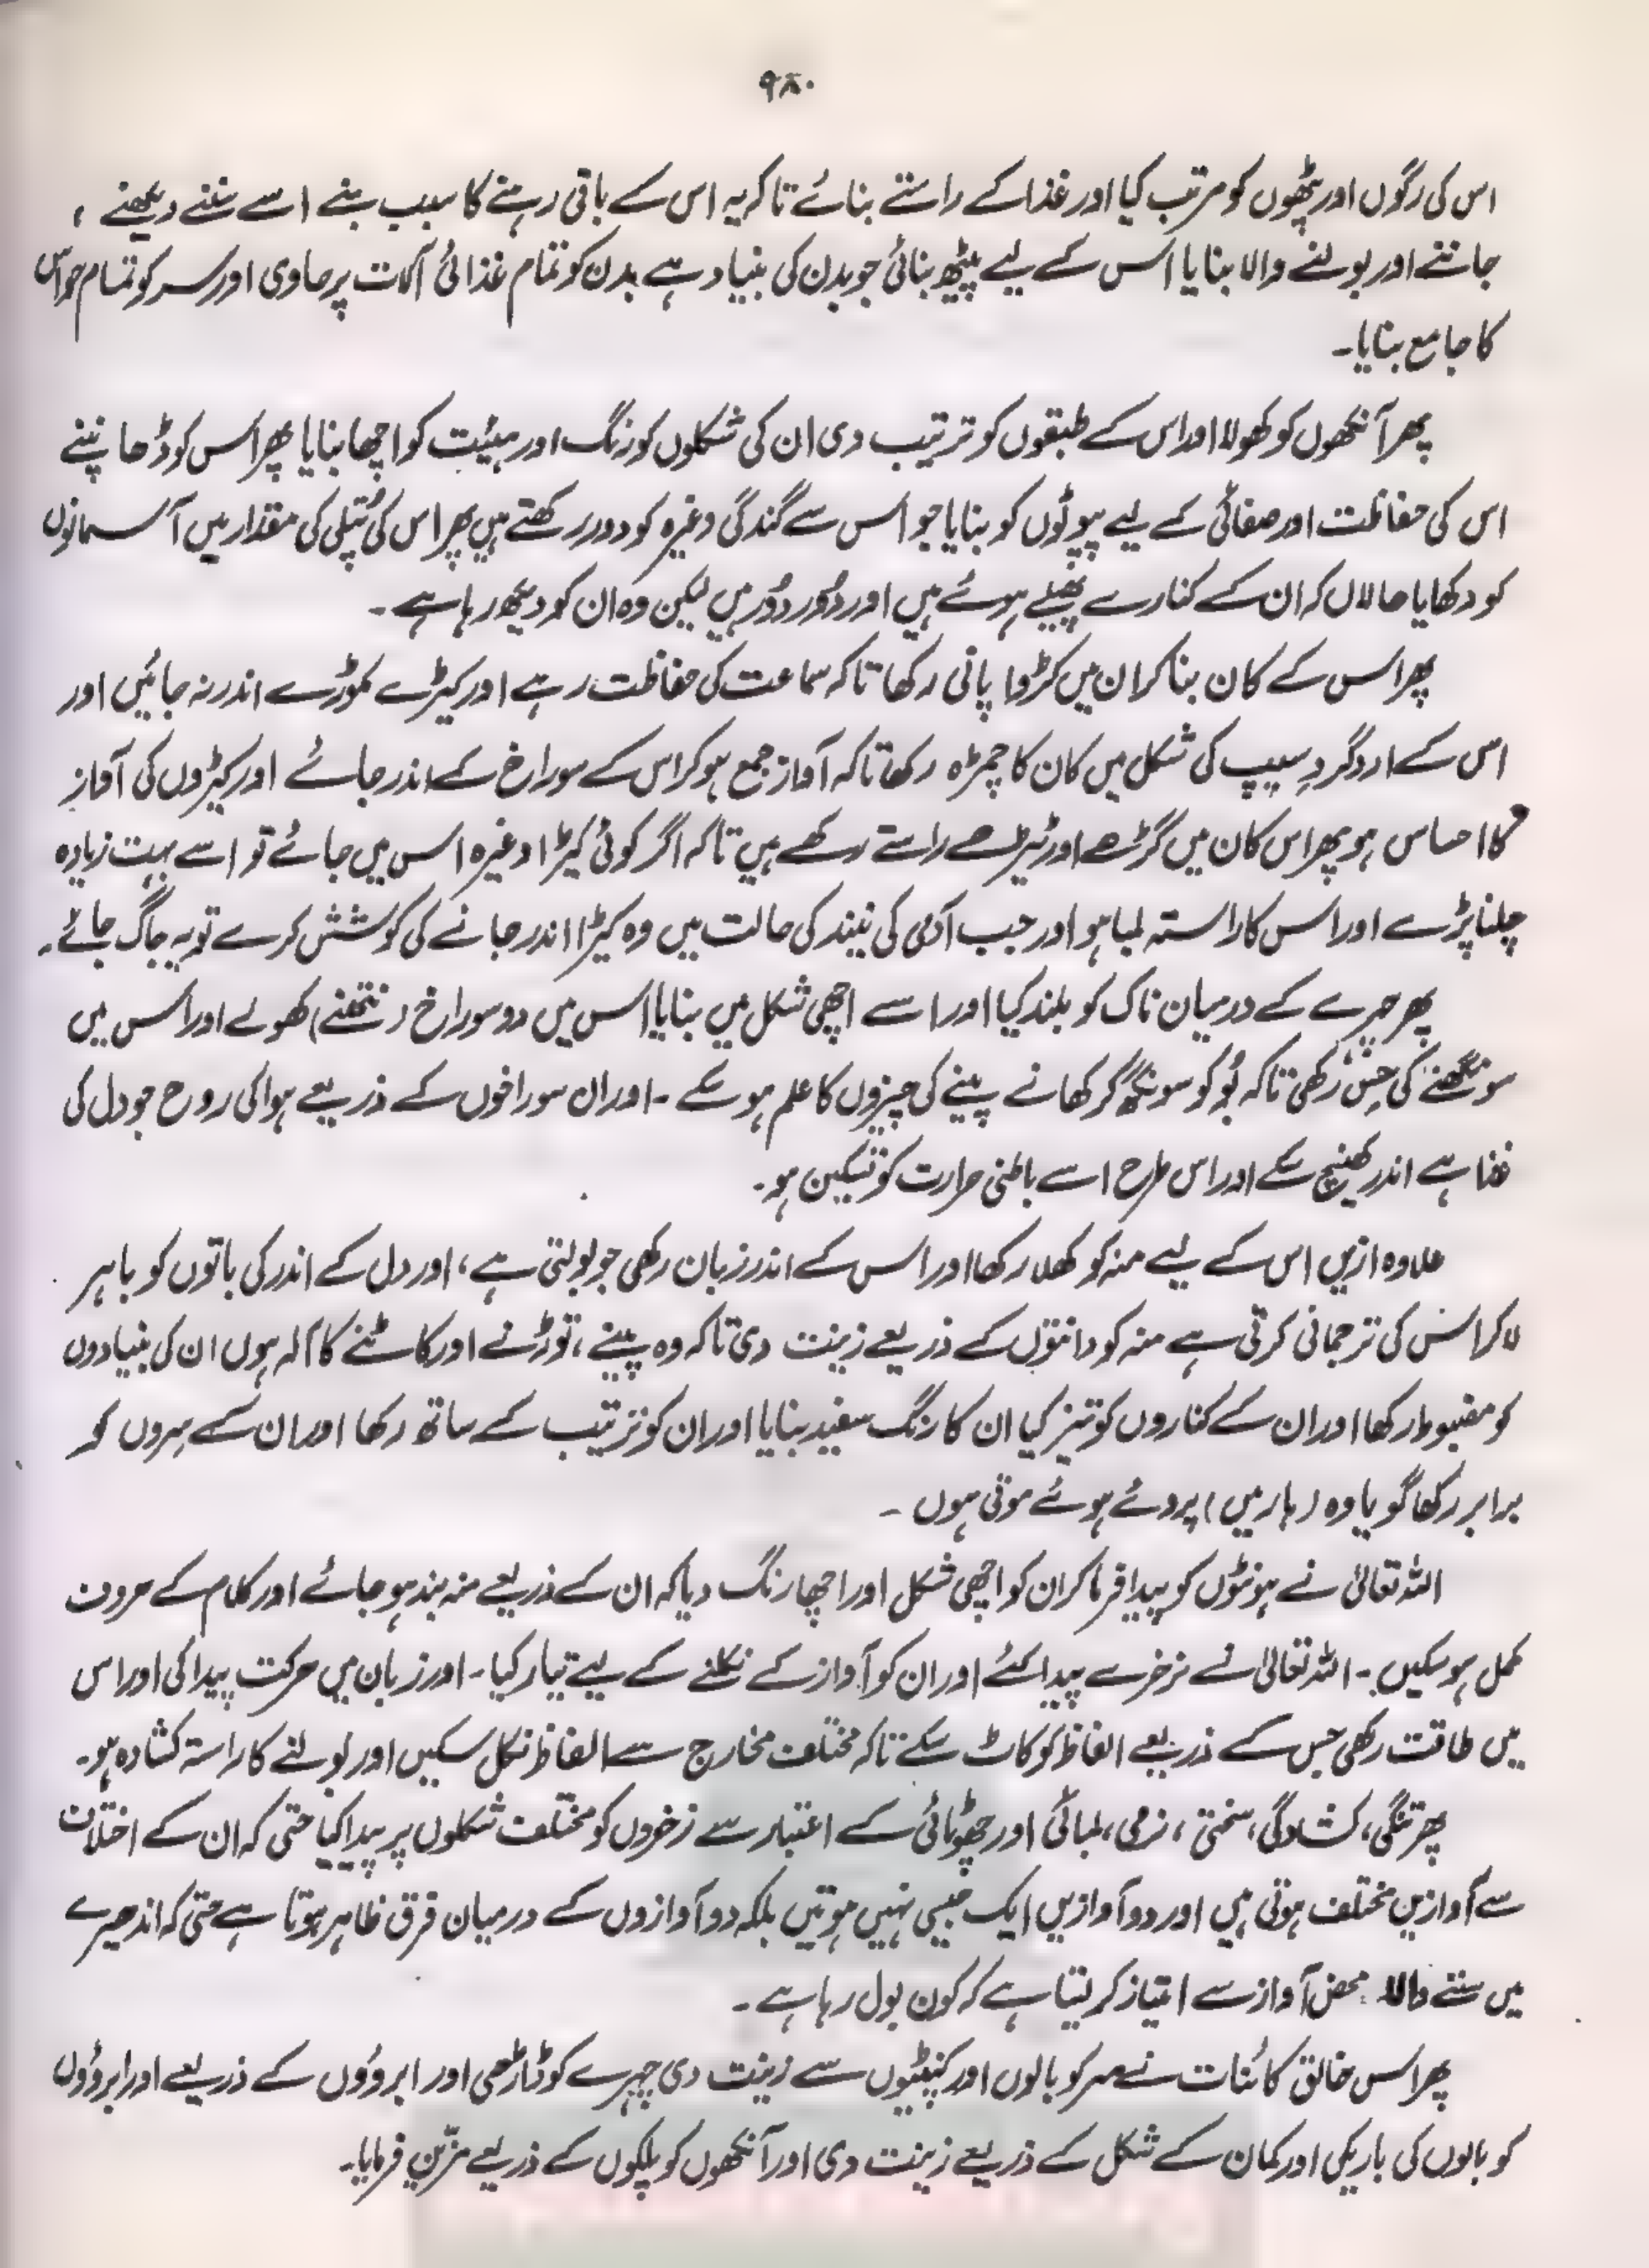 ۹۸۰
اس کی رگوں اور پٹھوں کو مرتب کیا اور غذا کے راستے بنائے تاکہ یہ اس کے باقی رہنے کا سبب بنے اسے سننے دیکھنے ،
جاننے اور بولنے والا بنایا اس کے لیے پیٹھ بنائی جو بدن کی بنیاد ہے بدن کو تمام غذائی آلات پر حاوی اور سر کو تمام حواس
کا جامع بنایا۔
پھر آنکھوں کو کھولا اور اس کے طبقوں کو ترتیب دی ان کی شکلوں کو رنگ اور ہیئت کو اچھا بنایا پھر اس کو ڈھانپنے
اس کی حفاظت اور صفائی کے لیے پپوٹوں کو بنایا جو اس سے گندگی وغیرہ کو دور رکھتے ہیں پھر اس کی پُتلی کی مقدار میں آسمانوں
کو دکھایا حالاں کہ ان کے کنارے پھیلے ہوئے ہیں اور دُور دُور ہیں لیکن وہ ان کو دیکھ رہا ہے ۔
پھر اس کے کان بنا کر ان میں کڑوا پانی رکھا تاکہ سماعت کی حفاظت رہے اور کیڑے مکوڑے اندر نہ جائیں اور
اس کے اردگرد سیپ کی شکل میں کان کا چمڑہ رکھا تاکہ آواز جمع ہو کر اس کے سوراخ کے اندر جائے اور کیڑوں کی آواز
کا احساس ہو پھر اس کان میں گڑھے اور ٹیڑھے راستے رکھے ہیں تاکہ اگر کوئی کیڑا وغیرہ اس میں جائے تو اسے بہت زیادہ
چلنا پڑے اور اس کا راستہ لمبا ہو اور جب آدمی کی نیند کی حالت میں وہ کیڑا اندر جانے کی کوشش کرے تو یہ جاگ جائے۔
پھر چہرے کے درمیان ناک کو بلند کیا اور اسے اچھی شکل میں بنایا اس میں دو سوراخ (نتھنے) کھولے اور اس میں
سونگھنے کی حِس رکھی تاکہ بُو کو سونگھ کر کھانے پینے کی چیزوں کا علم ہو سکے ۔ اور ان سوراخوں کے ذریعے ہوا کی روح جو دل کی
غذا ہے اندر کھینچ سکے اور اس طرح اسے باطنی حرارت کو تسکین ہو۔
علاوہ ازیں اس کے لیے منہ کو کھلا رکھا اور اس کے اندر زبان رکھی جو بولتی ہے، اور دل کے اندر کی باتوں کو باہر
لا کر اس کی ترجمانی کرتی ہے منہ کو دانتوں کے ذریعے زینت دی تاکہ وہ پیسنے ، توڑنے اور کاٹنے کا آلہ ہوں ان کی بنیادوں
کو مضبوط رکھا اور ان کے کناروں کو تیز کیا ان کا رنگ سفید بنایا اور ان کو ترتیب کے ساتھ رکھا اور ان کے سروں کو
برابر رکھا گویا وہ (ہار میں) پروئے ہوئے موتی ہوں ۔
اللہ تعالیٰ نے ہونٹوں کو پیدا فرما کر ان کو اچھی شکل اور اچھا رنگ دیا کہ ان کے ذریعے منہ بند ہو جائے اور کلام کے حروف
مکمل ہو سکیں ۔ اللہ تعالیٰ نے نرخرے پیدا کئے اور ان کو آواز کے نکلنے کے لیے تیار کیا ۔ اور زبان میں حرکت پیدا کی اور اس
میں طاقت رکھی جس کے ذریعے الفاظ کو کاٹ سکے تاکہ مختلف مخارج سے الفاظ نکل سکیں اور بولنے کا راستہ کشادہ ہو۔
پھر تنگی، کشادگی، سختی ، نرمی، لمبائی اور چھوٹائی کے اعتبار سے نرخروں کو مختلف شکلوں پر پیدا کیا حتی کہ ان کے اختلاف
سے آوازیں مختلف ہوتی ہیں اور دو آوازیں ایک جیسی نہیں ہوتیں بلکہ دو آوازوں کے درمیان فرق ظاہر ہوتا ہے حتی کہ اندھیرے
میں سننے والا محض آواز سے امتیاز کر لیتا ہے کہ کون بول رہا ہے ۔
پھر اس خالق کائنات نے سر کو بالوں اور کنپٹیوں سے زینت دی چہرے کو ڈاڑھی اور ابروؤں کے ذریعے اور ابروؤں
کو بالوں کی باریکی اور کمان کے شکل کے ذریعے زینت دی اور آنکھوں کو پلکوں کے ذریعے مزّین فرمایا۔